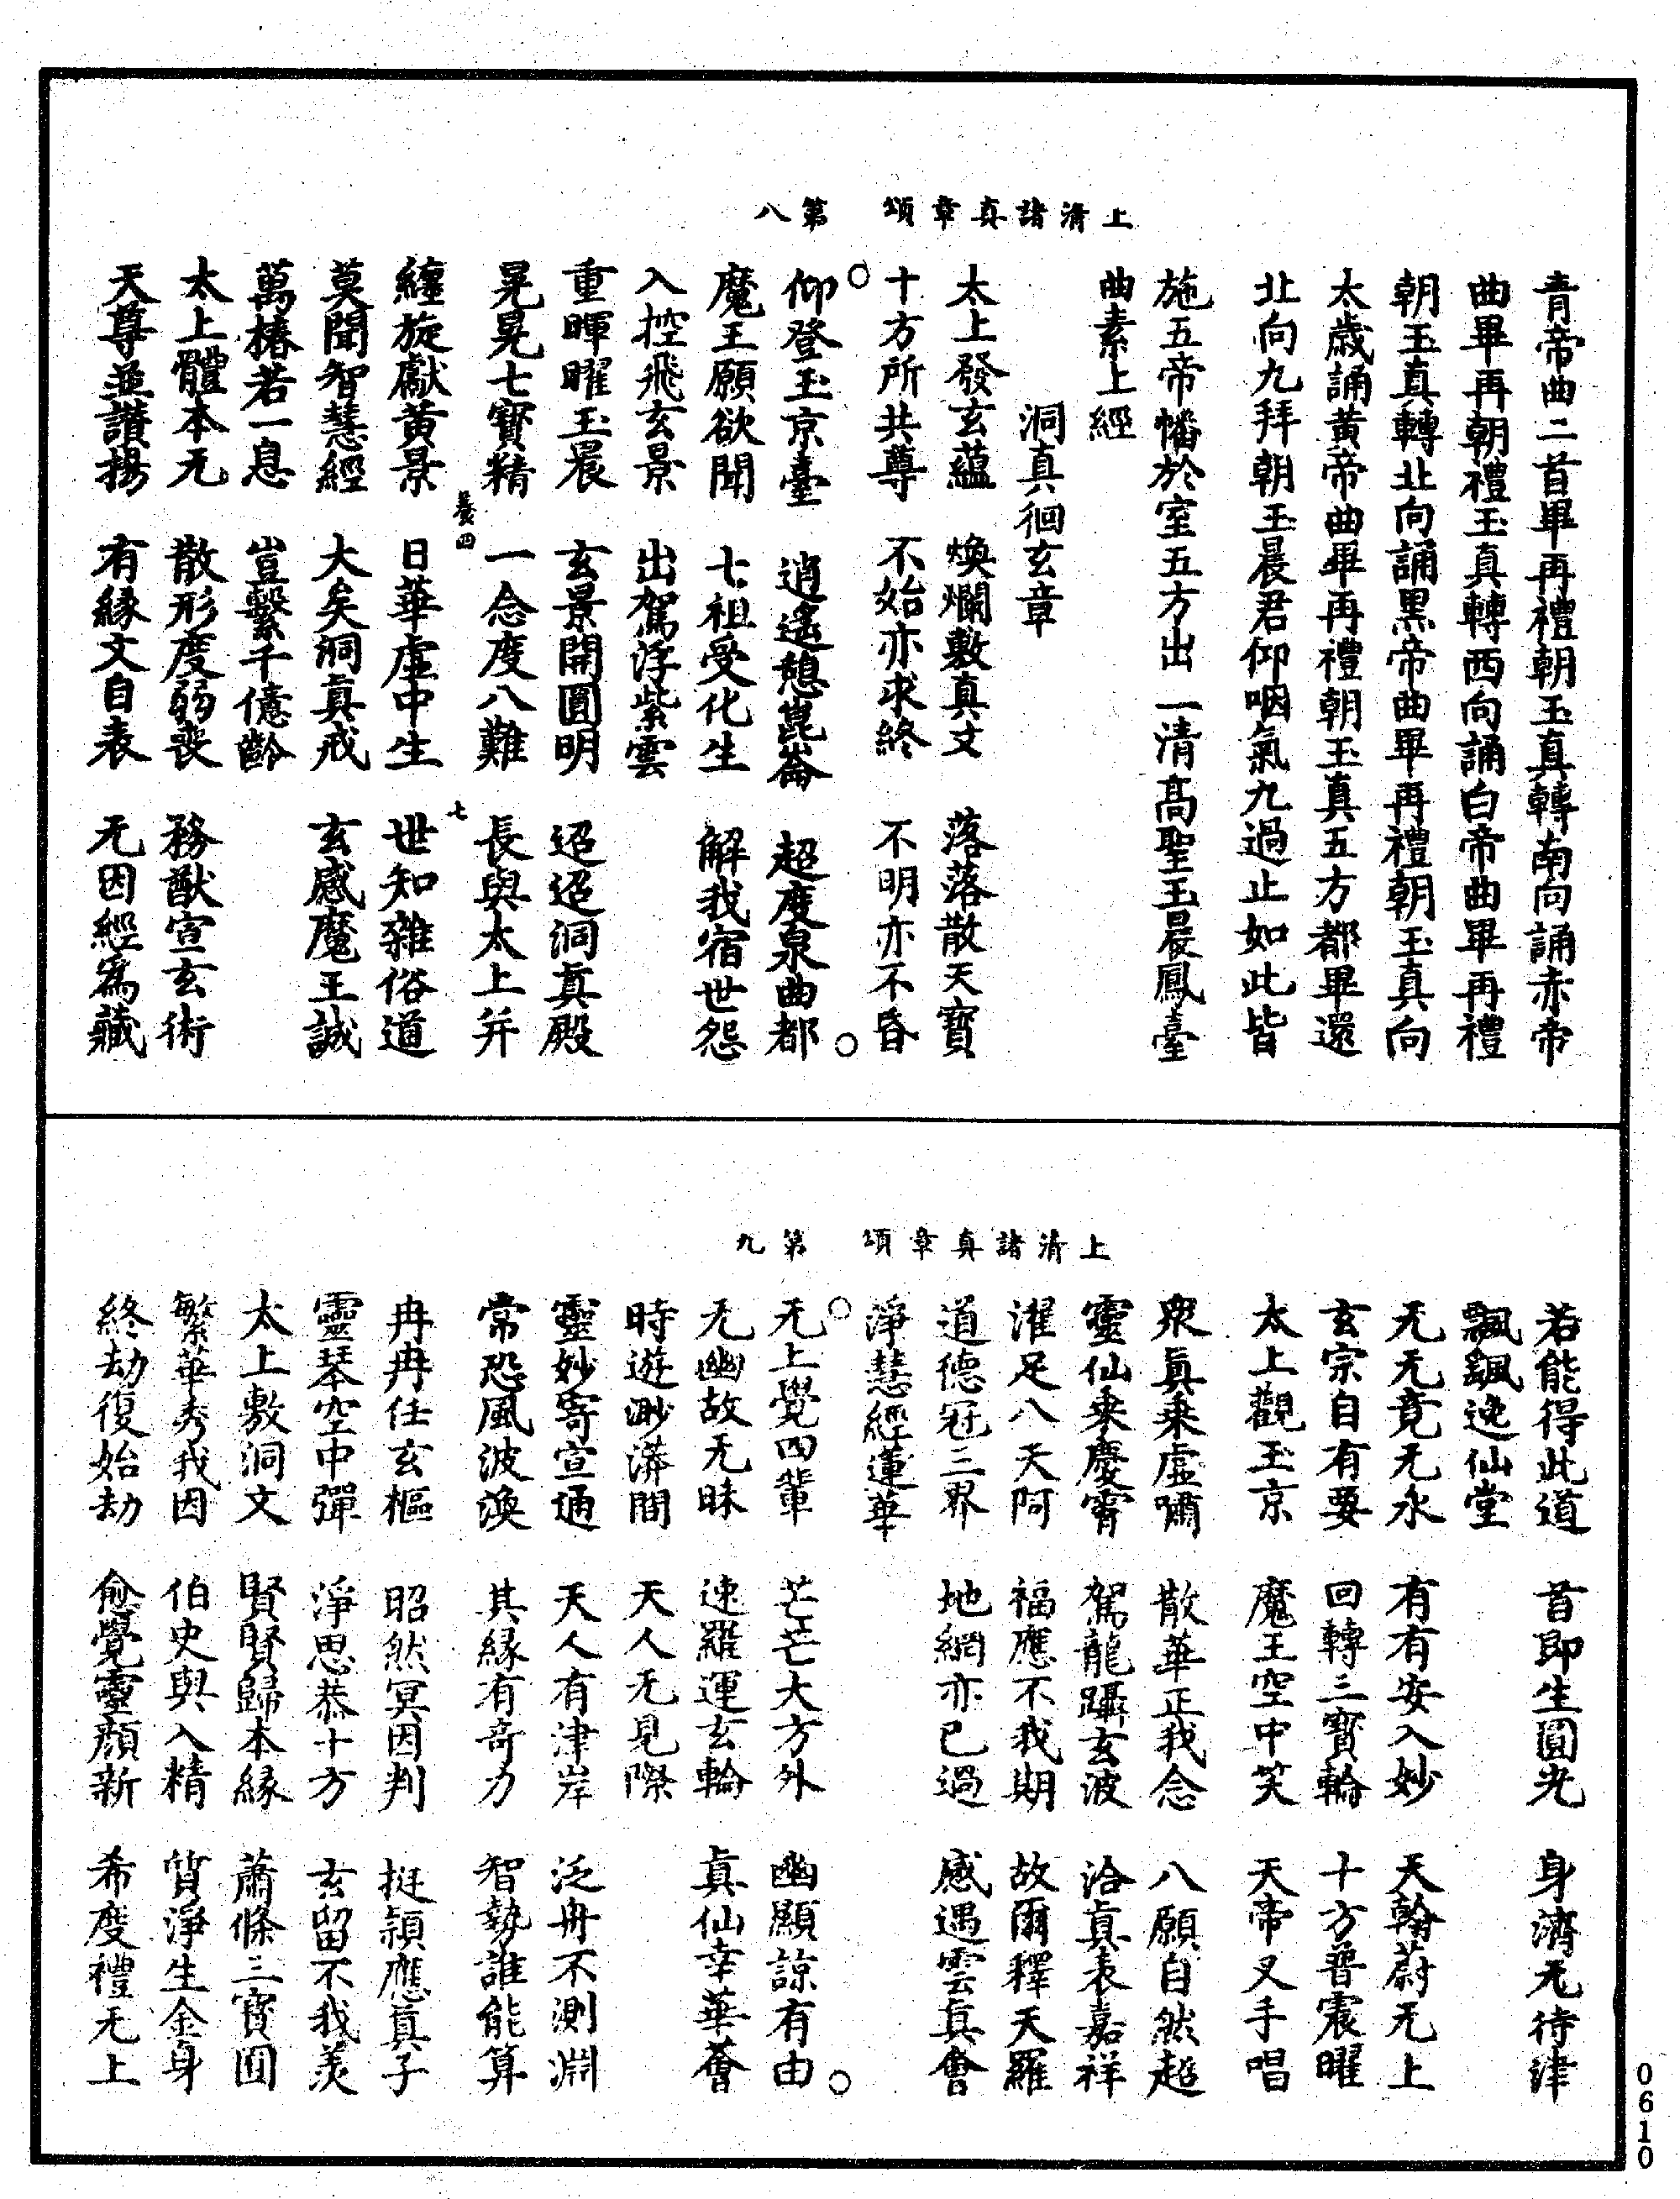 上清諸真章頌　第八
青帝曲二首畢再禮朝玉真轉南向誦赤帝
曲畢再朝禮玉真轉西向誦白帝曲畢再禮
朝玉真轉北向誦黑帝曲畢再禮朝玉真向
太歲誦黃帝曲畢再禮朝玉真五方都畢還
北向九拜朝玉晨君仰咽氣九過止如此皆
施五帝幡於室五方出一清髙聖玉晨鳳臺
曲素上經
洞真徊玄章
太上發玄蘊　煥爛敷真文　落落散天寶
十方所共尊　不始亦求終　不明亦不昏
○仰登玉京臺　逍遙憩崑崙　超度泉曲都○
魔王願欲聞　七祖受化生　解我宿世怨
入控飛玄景　出駕浮紫雲
重暉曜玉晨　玄景開圓明　迢迢洞真殿
晃晃七寶精　一念度八難　長與太上并
養四　七
纏旋獻黃景　日華虛中生　世知雜俗道
莫聞智慧經　大矣洞真戒　玄感魔王誠
萬椿若一息　豈繫千億齡
太上體本无　散形度弱喪　務猷宣玄術
天尊並讃揚　有緣文自表　无因經爲藏
上清諸真章頌　第九
若能得此道　首即生圓光　身濟无待津
飄飄逸仙堂
无无竟无永　有有安入妙　天翰蔚无上
玄宗自有要　回轉三寶輪　十方普震曜
太上觀玉京　魔王空中笑　天帝叉手唱
衆真乗虛嘯　散華正我念　八願自然超
靈仙乗慶霄　駕龍躡玄波　洽真表嘉祥
濯足八天阿　福應不我期　故爾釋天羅
道德冠三界　地網亦已過　感遇雲真會
淨慧經蓮華
○无上覺四輩　芒芒大方外　幽顯諒有由○
无幽故无昧　速羅運玄輪　真仙幸華薈
時遊渺漭間　天人无見際
靈妙寄宣通　天人有津岸　泛舟不測淵
常恐風波渙　其緣有奇力　智勢誰能算
冉冉任玄樞　昭然冥因判　挺頴應真子
靈琴空中彈　淨思恭十方　玄留不我羙
太上敷洞文　賢賢歸本緣　蕭條三寶囿
繁華秀我因　伯史與入精　質淨生金身
終劫復始劫　愈覺靈顏新　希度禮无上
0610